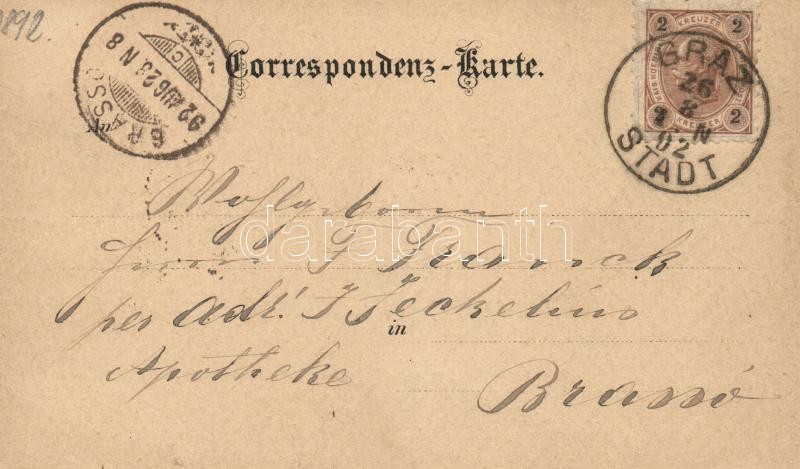 1892.
Correspondenz-Karte.
2 KREUZER 2
2 KREUZER 2
GRAZ
26
8
N
92
STADT
BRASSÓ
92 AUG 28 N 8
C
An
Wohlgeboren
Herrn J Tranock
per adr. J Jeckelius
in
Apotheke
Brassó
darabanth